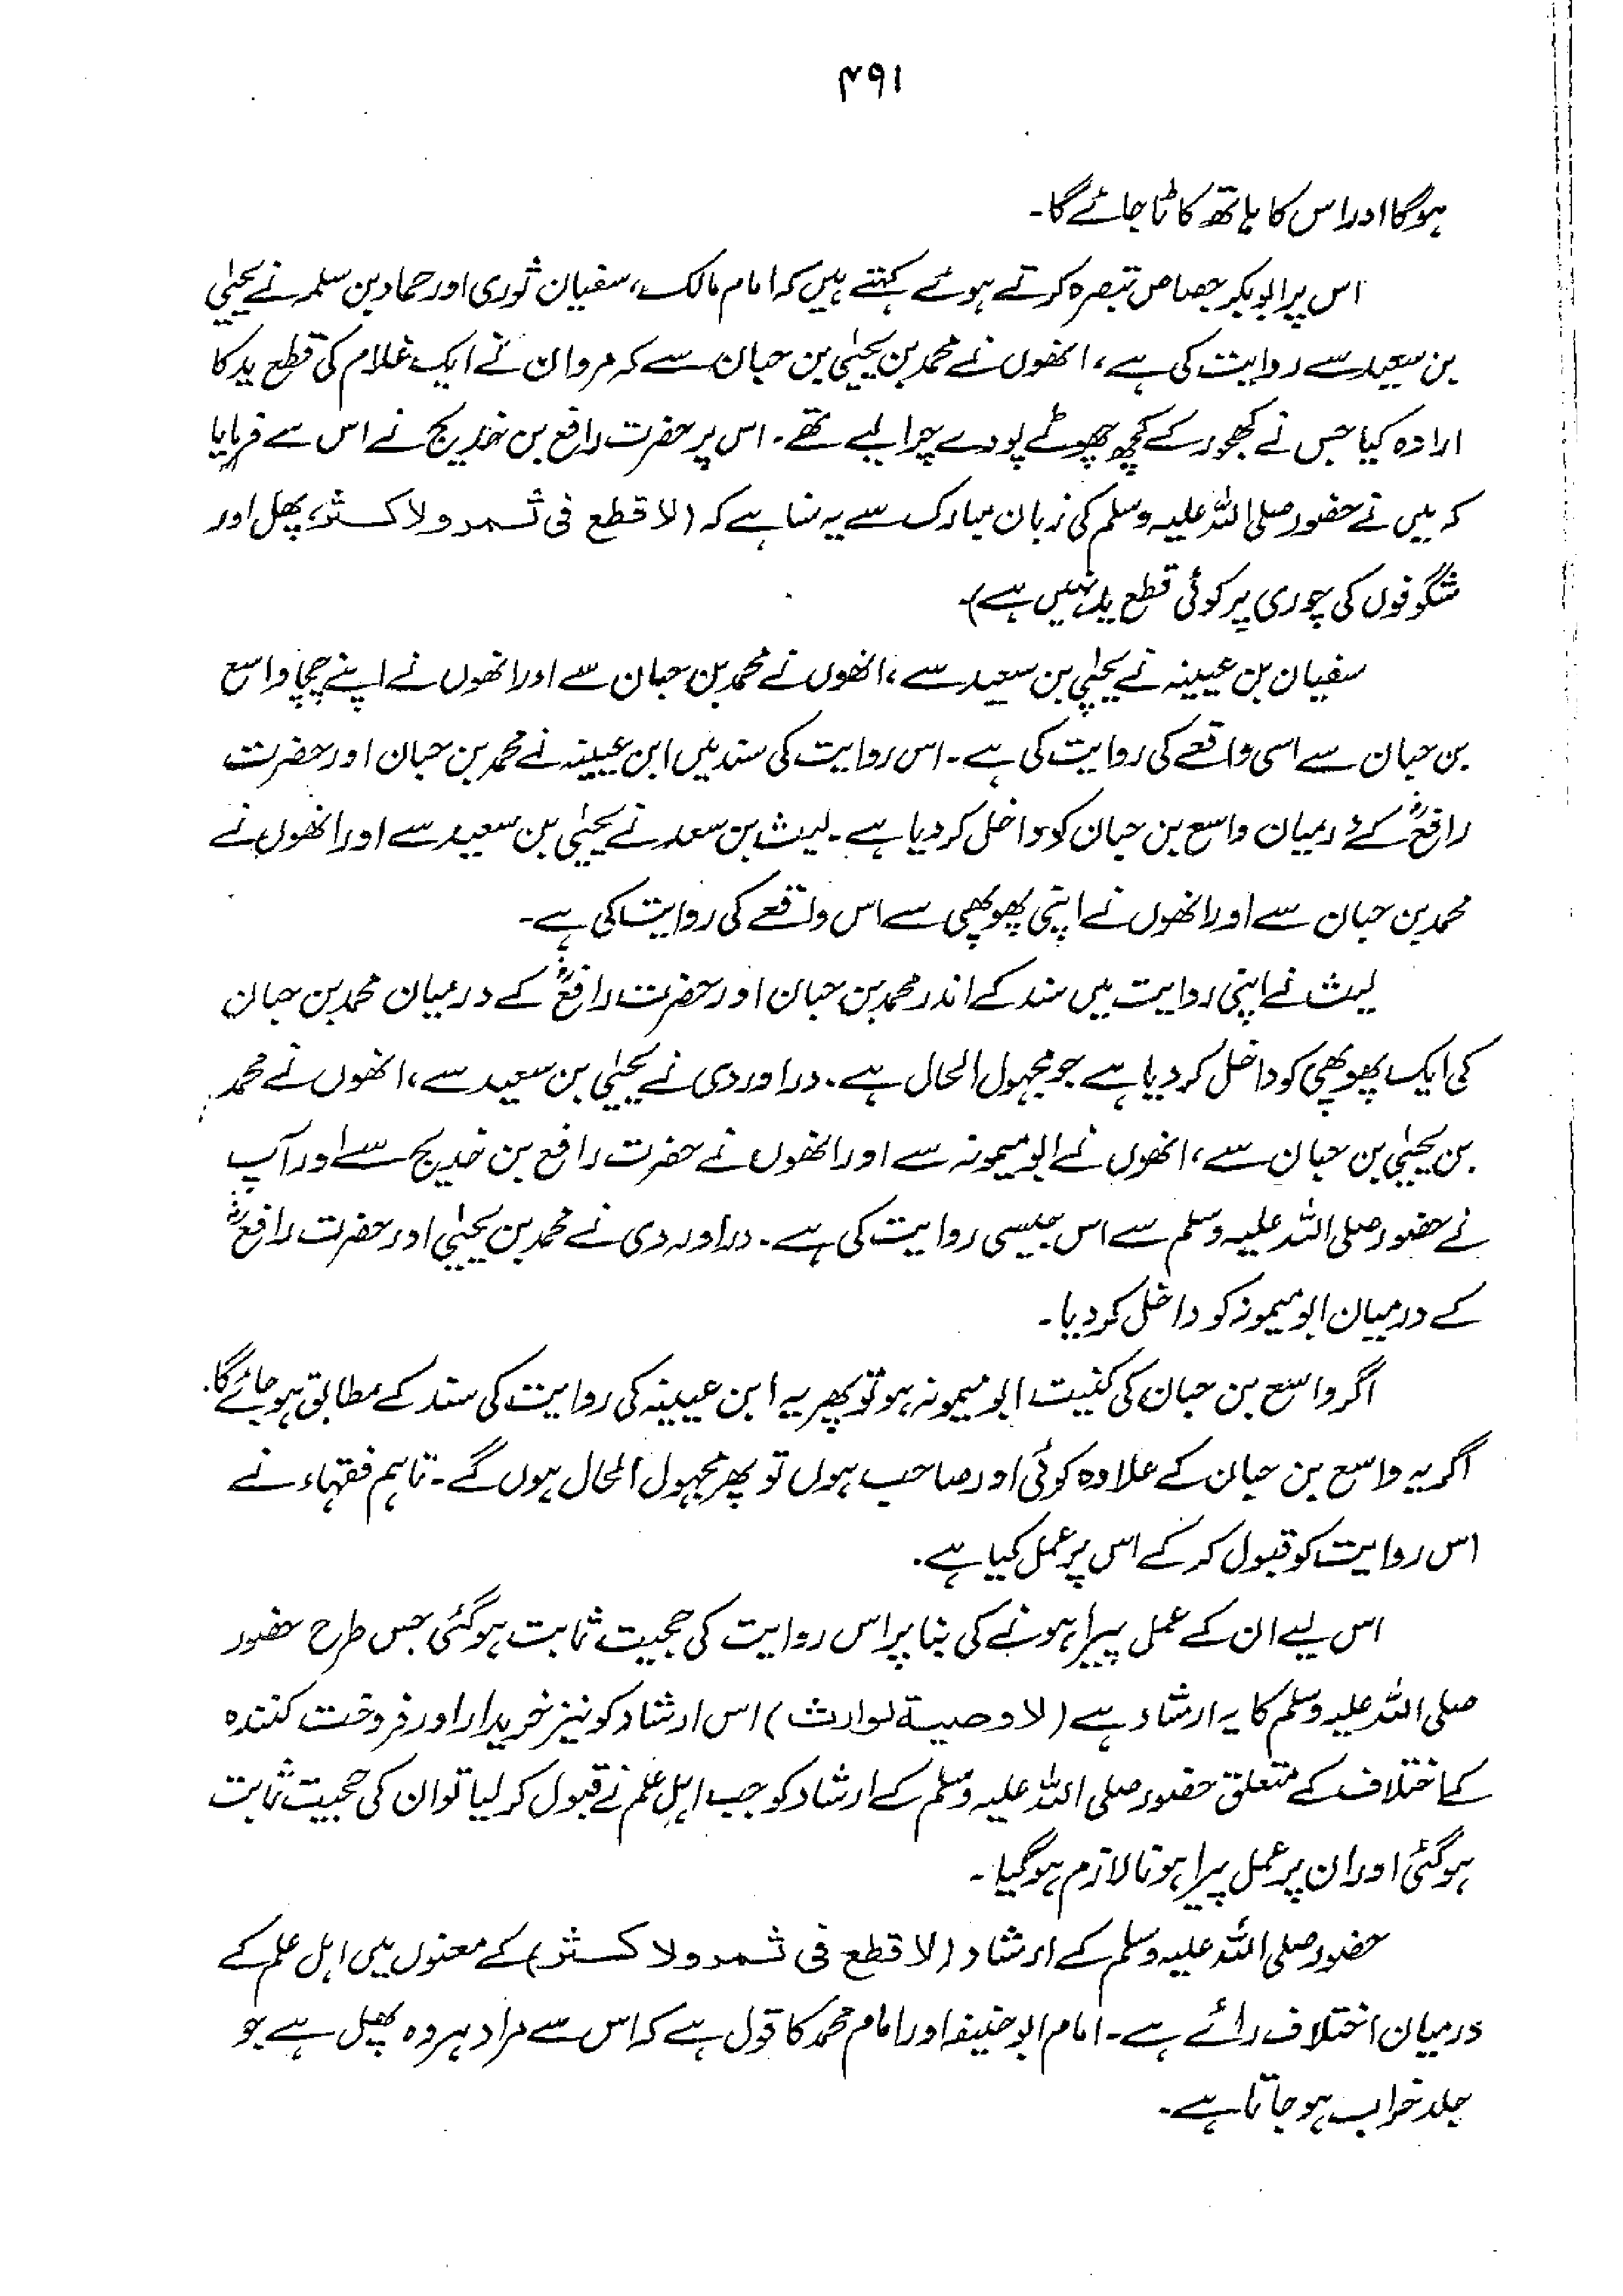 ۴۹۱
ہوگا اور اس کا ہاتھ کاٹا جائے گا۔
اس پر ابوبکر جصاص تبصرہ کرتے ہوئے کہتے ہیں کہ امام مالک، سفیان ثوری اور حماد بن سلمہ نے یحییٰ
بن سعید سے روایت کی ہے، انھوں نے محمد بن یحییٰ بن حبان سے کہ مروان نے ایک غلام کی قطع ید کا
ارادہ کیا جس نے کھجور کے کچھ چھوٹے پودے چرا لیے تھے۔ اس پر حضرت رافع بن خدیج نے اس سے فرمایا
کہ میں نے حضور صلی اللہ علیہ وسلم کی زبان مبارک سے یہ سنا ہے کہ (لا قطع فی ثمر ولا کثر، پھل اور
شگوفوں کی چوری پر کوئی قطع ید نہیں ہے)۔
سفیان بن عیینہ نے یحییٰ بن سعید سے، انھوں نے محمد بن حبان سے اور انھوں نے اپنے چچا واسع
بن حبان سے اسی واقعے کی روایت کی ہے۔ اس روایت کی سند میں ابن عیینہ نے محمد بن حبان اور حضرت
رافعؓ کے درمیان واسع بن حبان کو داخل کر دیا ہے۔ لیث بن سعد نے یحییٰ بن سعید سے اور انھوں نے
محمد بن حبان سے اور انھوں نے اپنی پھوپھی سے اس واقعے کی روایت کی ہے۔
لیث نے اپنی روایت میں سند کے اندر محمد بن حبان اور حضرت رافعؓ کے درمیان محمد بن حبان
کی ایک پھوپھی کو داخل کر دیا ہے جو مجہول الحال ہے۔ دراوردی نے یحییٰ بن سعید سے، انھوں نے محمد
بن یحییٰ بن حبان سے، انھوں نے ابو میمونہ سے اور انھوں نے حضرت رافع بن خدیج سے اور آپ
نے حضور صلی اللہ علیہ وسلم سے اس جیسی روایت کی ہے۔ دراوردی نے محمد بن یحییٰ اور حضرت رافعؓ
کے درمیان ابو میمونہ کو داخل کر دیا۔
اگر واسع بن حبان کی کنیت ابو میمونہ ہو تو پھر یہ ابن عیینہ کی روایت کی سند کے مطابق ہو جائے گا۔
اگر یہ واسع بن حبان کے علاوہ کوئی اور صاحب ہوں تو پھر مجہول الحال ہوں گے۔ تاہم فقہاء نے
اس روایت کو قبول کر کے اس پر عمل کیا ہے۔
اس لیے ان کے عمل پیرا ہونے کی بنا پر اس روایت کی حجیت ثابت ہوگئی جس طرح حضور
صلی اللہ علیہ وسلم کا یہ ارشاد ہے (لا وصیة لوارث) اس ارشاد کو نیز خریدار اور فروخت کنندہ
کے اختلاف کے متعلق حضور صلی اللہ علیہ وسلم کے ارشاد کو جب اہل علم نے قبول کر لیا تو ان کی حجیت ثابت
ہوگئی اور ان پر عمل پیرا ہونا لازم ہوگیا۔
حضور صلی اللہ علیہ وسلم کے ارشاد (لا قطع فی ثمر ولا کثر) کے معنوں میں اہل علم کے
درمیان اختلاف رائے ہے۔ امام ابو حنیفہ اور امام محمد کا قول ہے کہ اس سے مراد ہر وہ پھل ہے جو
جلد خراب ہو جاتا ہے۔